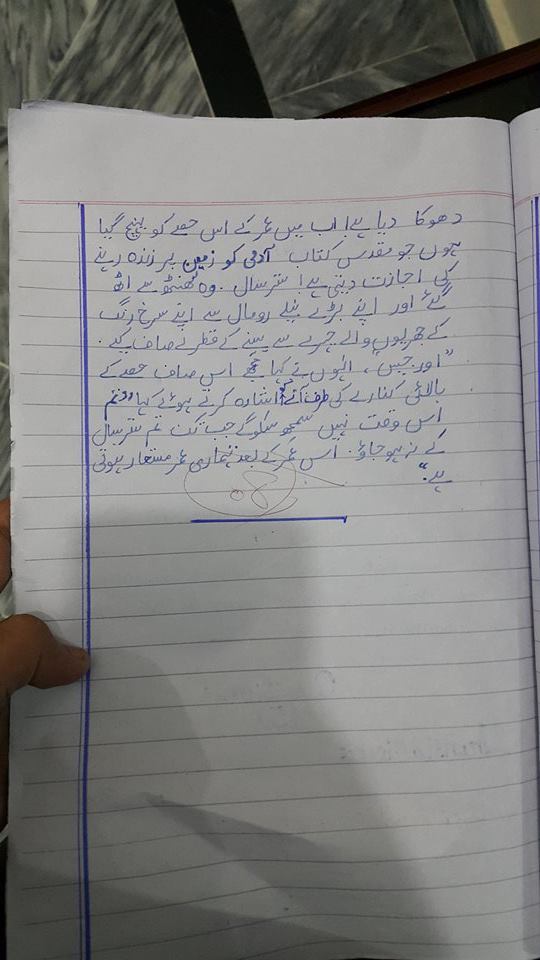 دھوکا دیا ہے۔ اب میں عمر کے اس حصے کو پہنچ گیا
ہوں جو مقدس کتاب آدمی کو زمین پر زندہ رہنے
کی اجازت دیتی ہے۔ ستر سال۔ وہ گھنٹے سے اٹھ
گئے اور اپنے بڑے نیلے رومال سے اپنے سرخ رنگ
کے جھریوں والے چہرے سے پسینے کے قطرے صاف کیے۔
"اور جیس، انہوں نے کہا مجھے اس صاف حصے کے
بالائی کنارے کی طرف آنے اشارہ کرتے ہوئے کہا "تم
اس وقت نہیں سمجھ سکو گے جب تک تم ستر سال
کے نہ ہو جاؤ۔ اس عمر کے بعد تمہاری عمر مستعار ہوتی
ہے"